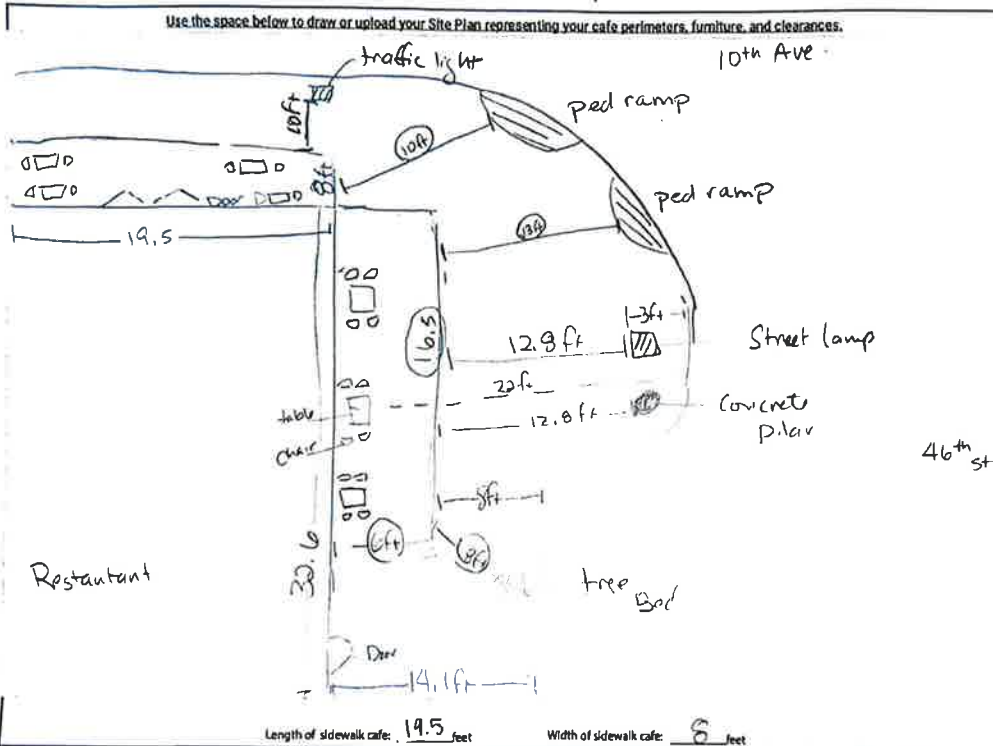 Use the space below to draw or upload your Site Plan representing your cafe perimeters, furniture, and clearances.
10th Ave.
traffic light
ped ramp
10ft
10ft
8ft
Door
ped ramp
19.5
13ft
3ft
12.8 ft
Street lamp
16.5
22ft
table
12.8 ft
Concrete
Pilar
chair
46th
st
8ft
30.6
6ft
8ft
Restautant
tree Bed
Door
14.1ft
Length of sidewalk cafe: 19.5 feet Width of sidewalk cafe: 8 feet